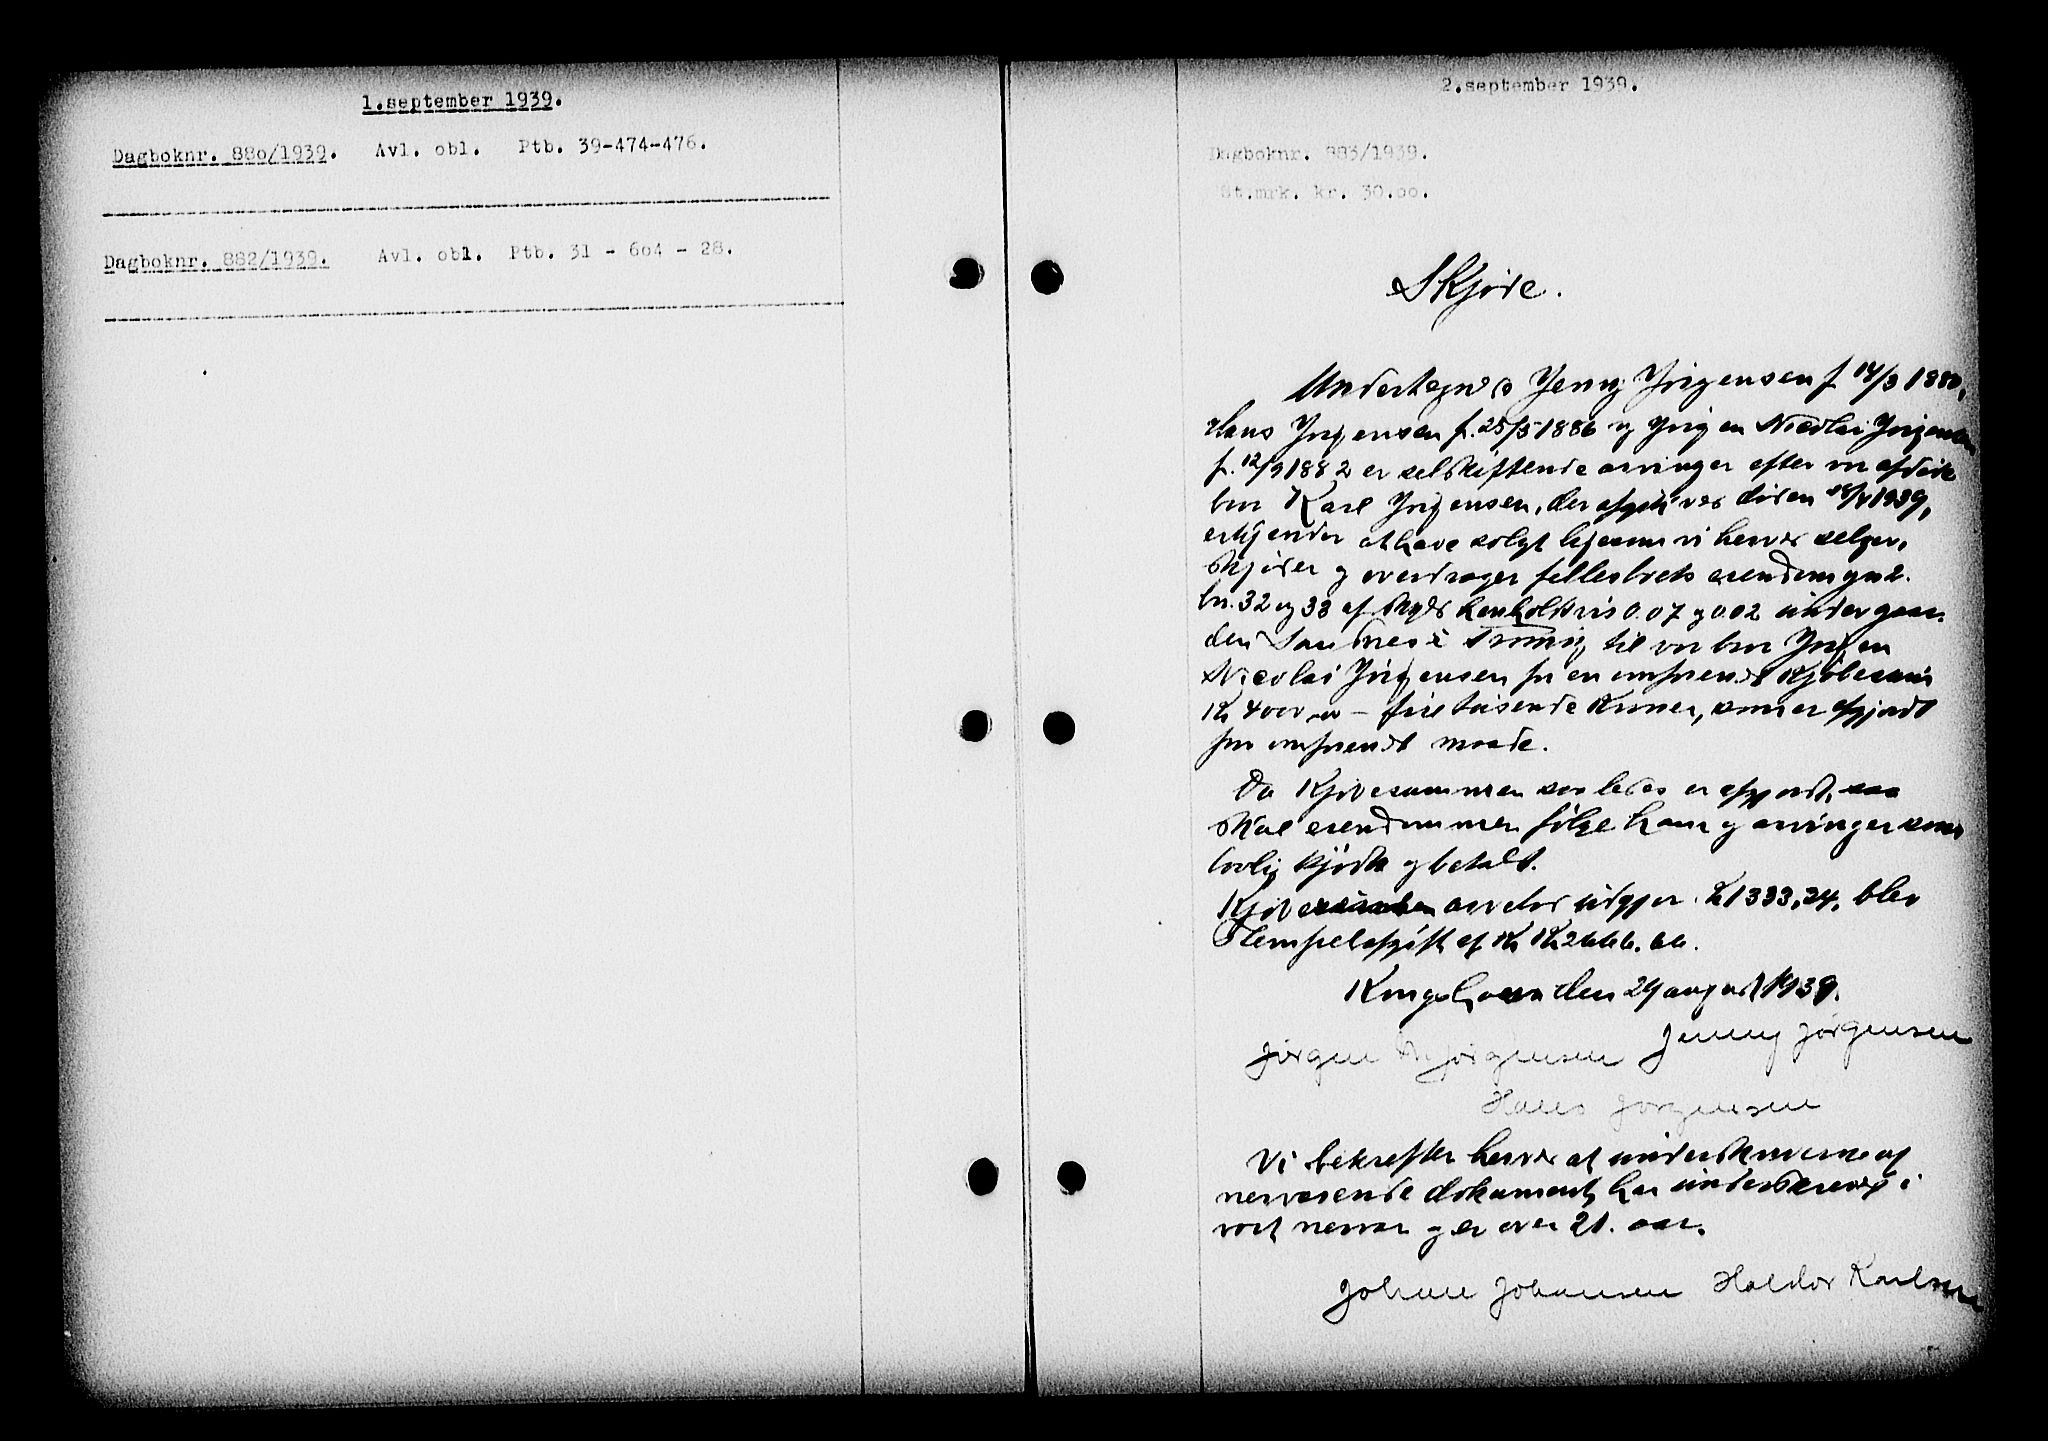 1.september 1939.
Dagboknr. 880/1939. Avl. obl. Ptb. 39-474-476.
Dagboknr. 882/1939. Avl. obl. Ptb. 31 - 604 - 28.
2.september 1939.
Dagboknr. 883/1939.
St.mrk. kr. 30.00.
Skjøte.
Undertegnede Jenny Jørgensen f 14/3 1880,
Hans Jørgensen f. 25/5 1886 og Jørgen Nicolai Jørgensen
f. 12/9 1882 er selskiftende arvinger efter vor afdøde
bror Karl Jørgensen, der afgik ved døden 1939,
erkjender at have solgt ligesom vi herved selger,
skjøter og overdrager fellesboets eiendom gn 2.
bn. 32 og 33 af skyld henholdsvis 0.07 og 0.02 under gaar-
den Sandnes i Tromøy til vor bror Jørgen
Nicolai Jørgensen for en omforenet kjøbesum
Kr 4000,00 - fire tusende kroner, som er afgjordt
paa omforenet maade.
Da kjøbesummen saaledes er afgjordt, saa
skal eiendommen følge ham og arvinger som
lovlig kjøbt og betalt.
arvelod utgjør Kr 1333,34, blir
Stempelafgift af Kr 2666.66.
Kongshavn den 29 august 1939.
Jørgen N Jørgensen Jenny Jørgensen
Hans Jørgensen
Vi bekrefter herved at underskriverne af
nerverende dokument har underskrevet i
vort nerver og er over 21. aar.
Johan Johansen Haldor Karlsen